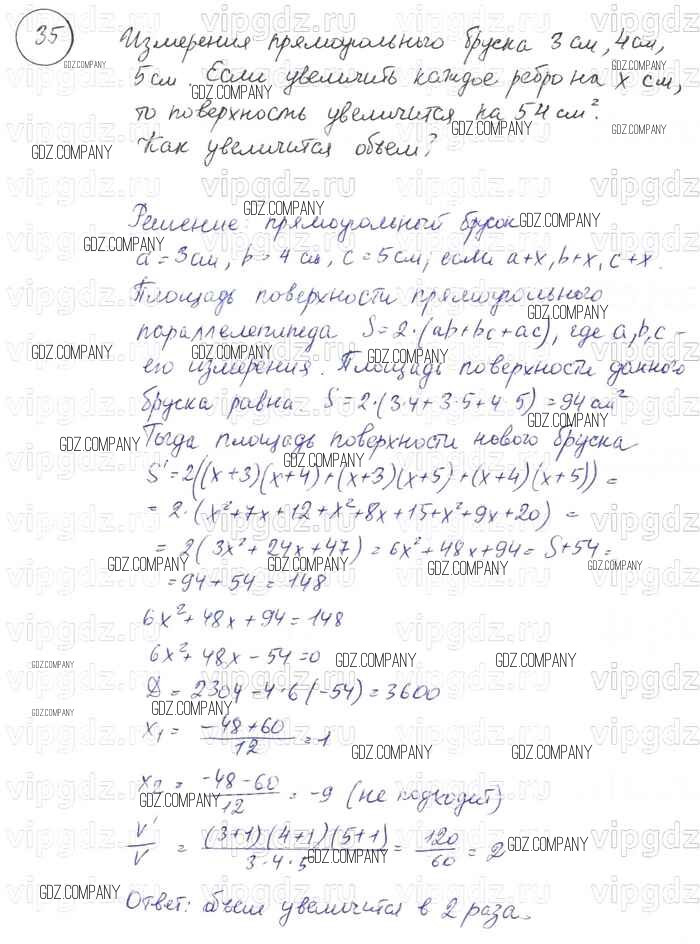 35
Измерения прямоугольного бруска 3 см, 4 см,
5 см Если увеличить каждое ребро на x см,
то поверхность увеличится на 54 см².
Как увеличится объем?
Решение: прямоугольный брусок
a = 3 см, b = 4 см, c = 5 см, если a+x, b+x, c+x.
Площадь поверхности прямоугольного
параллелепипеда S = 2·(ab+bc+ac), где a,b,c –
его измерения. Площадь поверхности данного
бруска равна S = 2·(3·4+3·5+4·5) = 94 см²
Тогда площадь поверхности нового бруска
S' = 2((x+3)(x+4)+(x+3)(x+5)+(x+4)(x+5)) =
= 2·(x²+7x+12+x²+8x+15+x²+9x+20) =
= 2(3x²+24x+47) = 6x²+48x+94 = S+54 =
= 94+54 = 148
6x²+48x+94 = 148
6x²+48x-54 = 0
D = 2304-4·6(-54) = 3600
x₁ = (-48+60)/12 = 1
x₂ = (-48-60)/12 = -9 (не подходит)
V'/V = (3+1)(4+1)(5+1)/3·4·5 = 120/60 = 2
Ответ: объем увеличится в 2 раза.
GDZ.COMPANY
vipgdz.ru